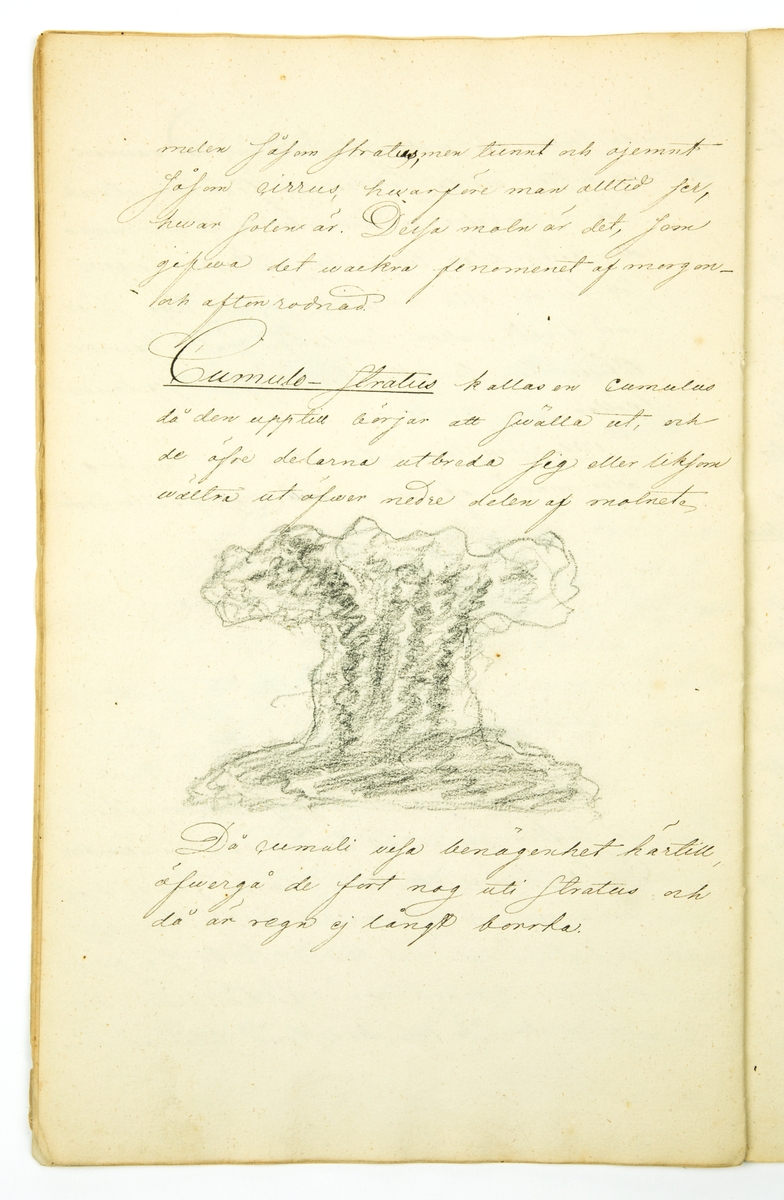 melen såsom stratus, men tunnt och ojemnt
såsom cirrus, hwarföre man alltid ser,
hwar solen är. Dessa moln är det, som
gifwa det wackra fenomenet af morgon-
och aftonrodnad.
Cumulo-Stratus kallas en cumulus
då den upptill börjar att swälla ut, och
de öfre delarna utbreda sig eller liksom
wältra ut öfwer nedre delen af molnet.
Då cumuli visa benägenhet härtill,
öfwergå de fort nog uti Stratus och
då är regn ej långt borrta.